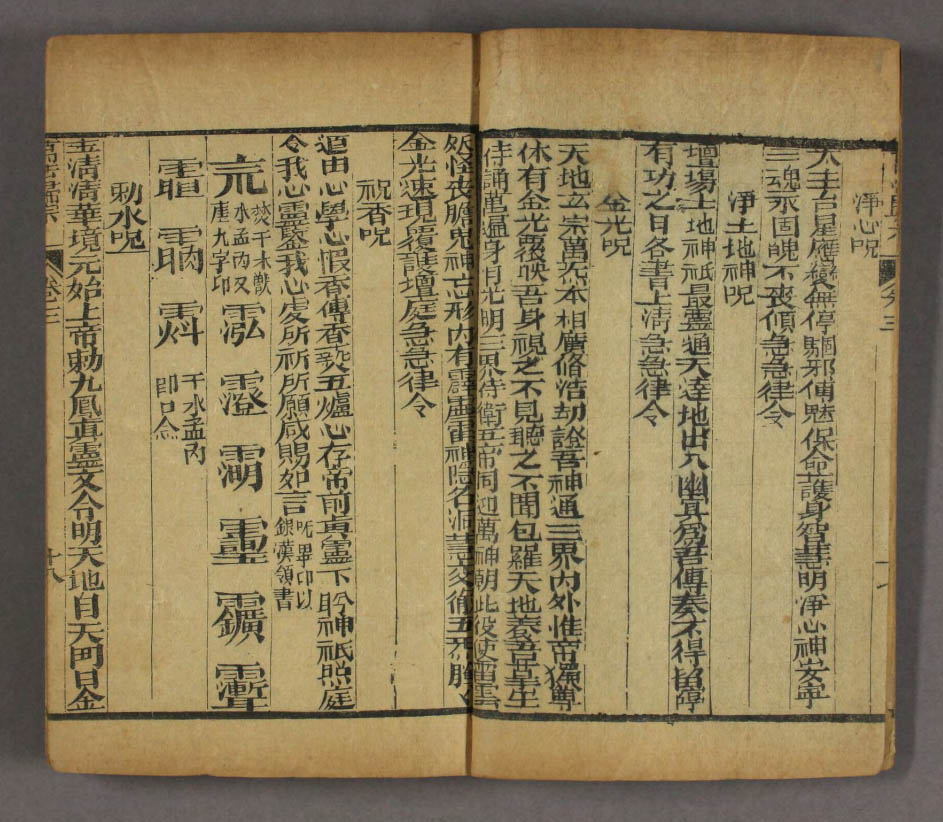 淨心呪
太上台星應變無停驅邪縛魅保命護身智慧明淨心神安寧
三魂永固魄不喪傾急急律令
淨土地神呪
壇塲土地神祇最靈通天達地出入幽冥爲吾傳奏不得留停
有功之日各書上淸急急律令
金光呪
天地玄宗萬炁本相廣脩浩劫證吾神通三界內外惟帝獨尊
休有金光覆映吾身視之不見聽之不聞包羅天地養吾羣生
侍誦萬遍身有光明三界侍衛五帝同迎萬神朝此役使雷雲
妖怪丧膽鬼神亡形內有霹靂雷神隱名洞慧交徹五炁騰
金光速現覆護壇庭急急律令
祝香呪
道由心學心假香傳香爇玉爐心存帝前真靈下盻神祇照庭
令我心靈鑒我心處所祈所願咸賜如言呪畢印以銀漢領書
泓澄
干水盂內即口念
勅水呪
玉清清華境元始上帝勅九鳳真靈文分明天地日天門日金
卷三
十八